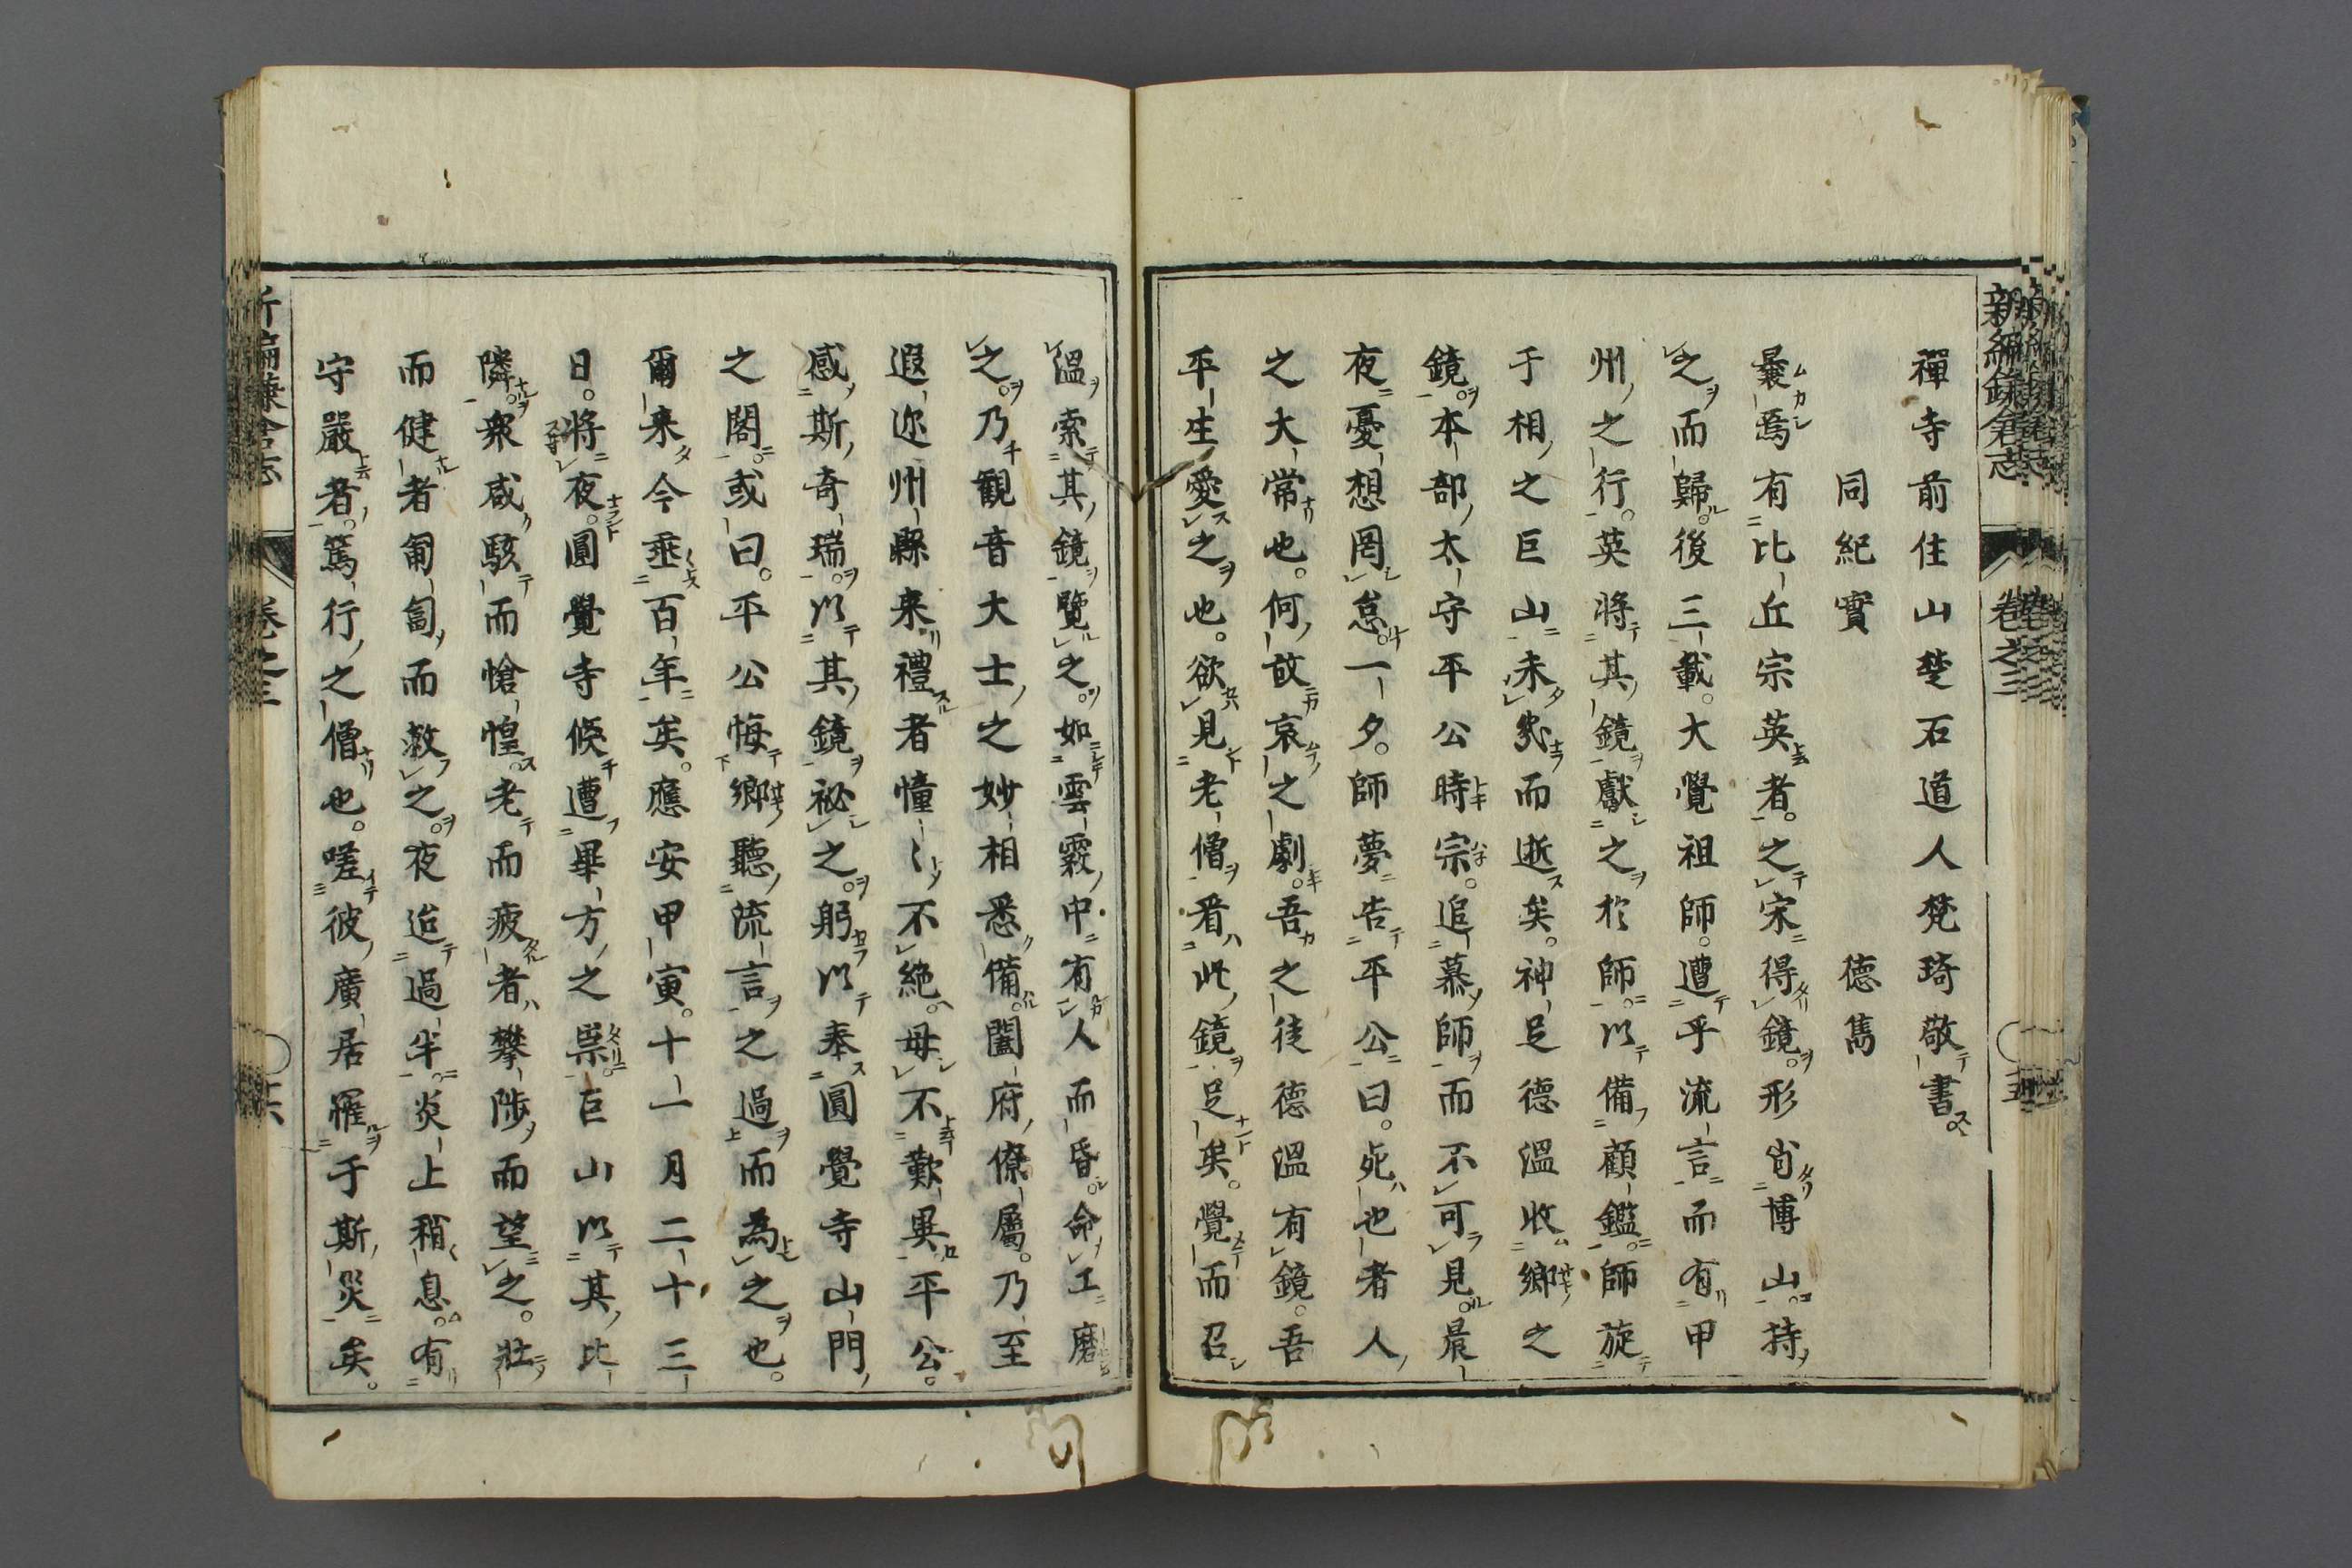 新編鎌倉志 卷之三
禪寺前住山楚石道人梵琦敬書
同紀實 德雋
曩焉有比丘宗英者。之宋得鏡。形肖博山。持
之而歸。後三載。大覺祖師。遭乎流言而有甲
州之行。英將其鏡獻之於師。以備顧鑑。師旋
于相之巨山未幾而逝矣。神足德溫收鄉之
鏡。本部太守平公時宗。追慕師而不可見。晨
夜憂想罔怠。一夕。師夢告平公曰。死也者人
之大常也。何故哀之劇。吾之徒德溫有鏡。吾
平生愛之也。欲見老僧者此鏡足矣。覺而召
溫索其鏡覽之。如雲霧中有人而昏。命工磨
之。乃觀音大士之妙相悉備。闔府僚屬。乃至
遐迩州縣来禮者憧〻不絶。毋不歎異。平公。
感斯奇瑞。以其鏡祕之。躬以奉圓覺寺山門
之閣。或曰。平公悔鄉聽流言之過而為之也。
爾来今垂百年矣。應安甲寅。十一月二十三
日。將夜。圓覺寺倐遭畢方之祟。巨山以其比
隣。衆咸駭而愴惶。老而疲者攀陟而望之。壯
而健者匍匐而救之。夜迨過半。炎上稍息。有
守嚴者。篤行之僧也。嗟彼廣居罹于斯災矣。
卷之三 十六